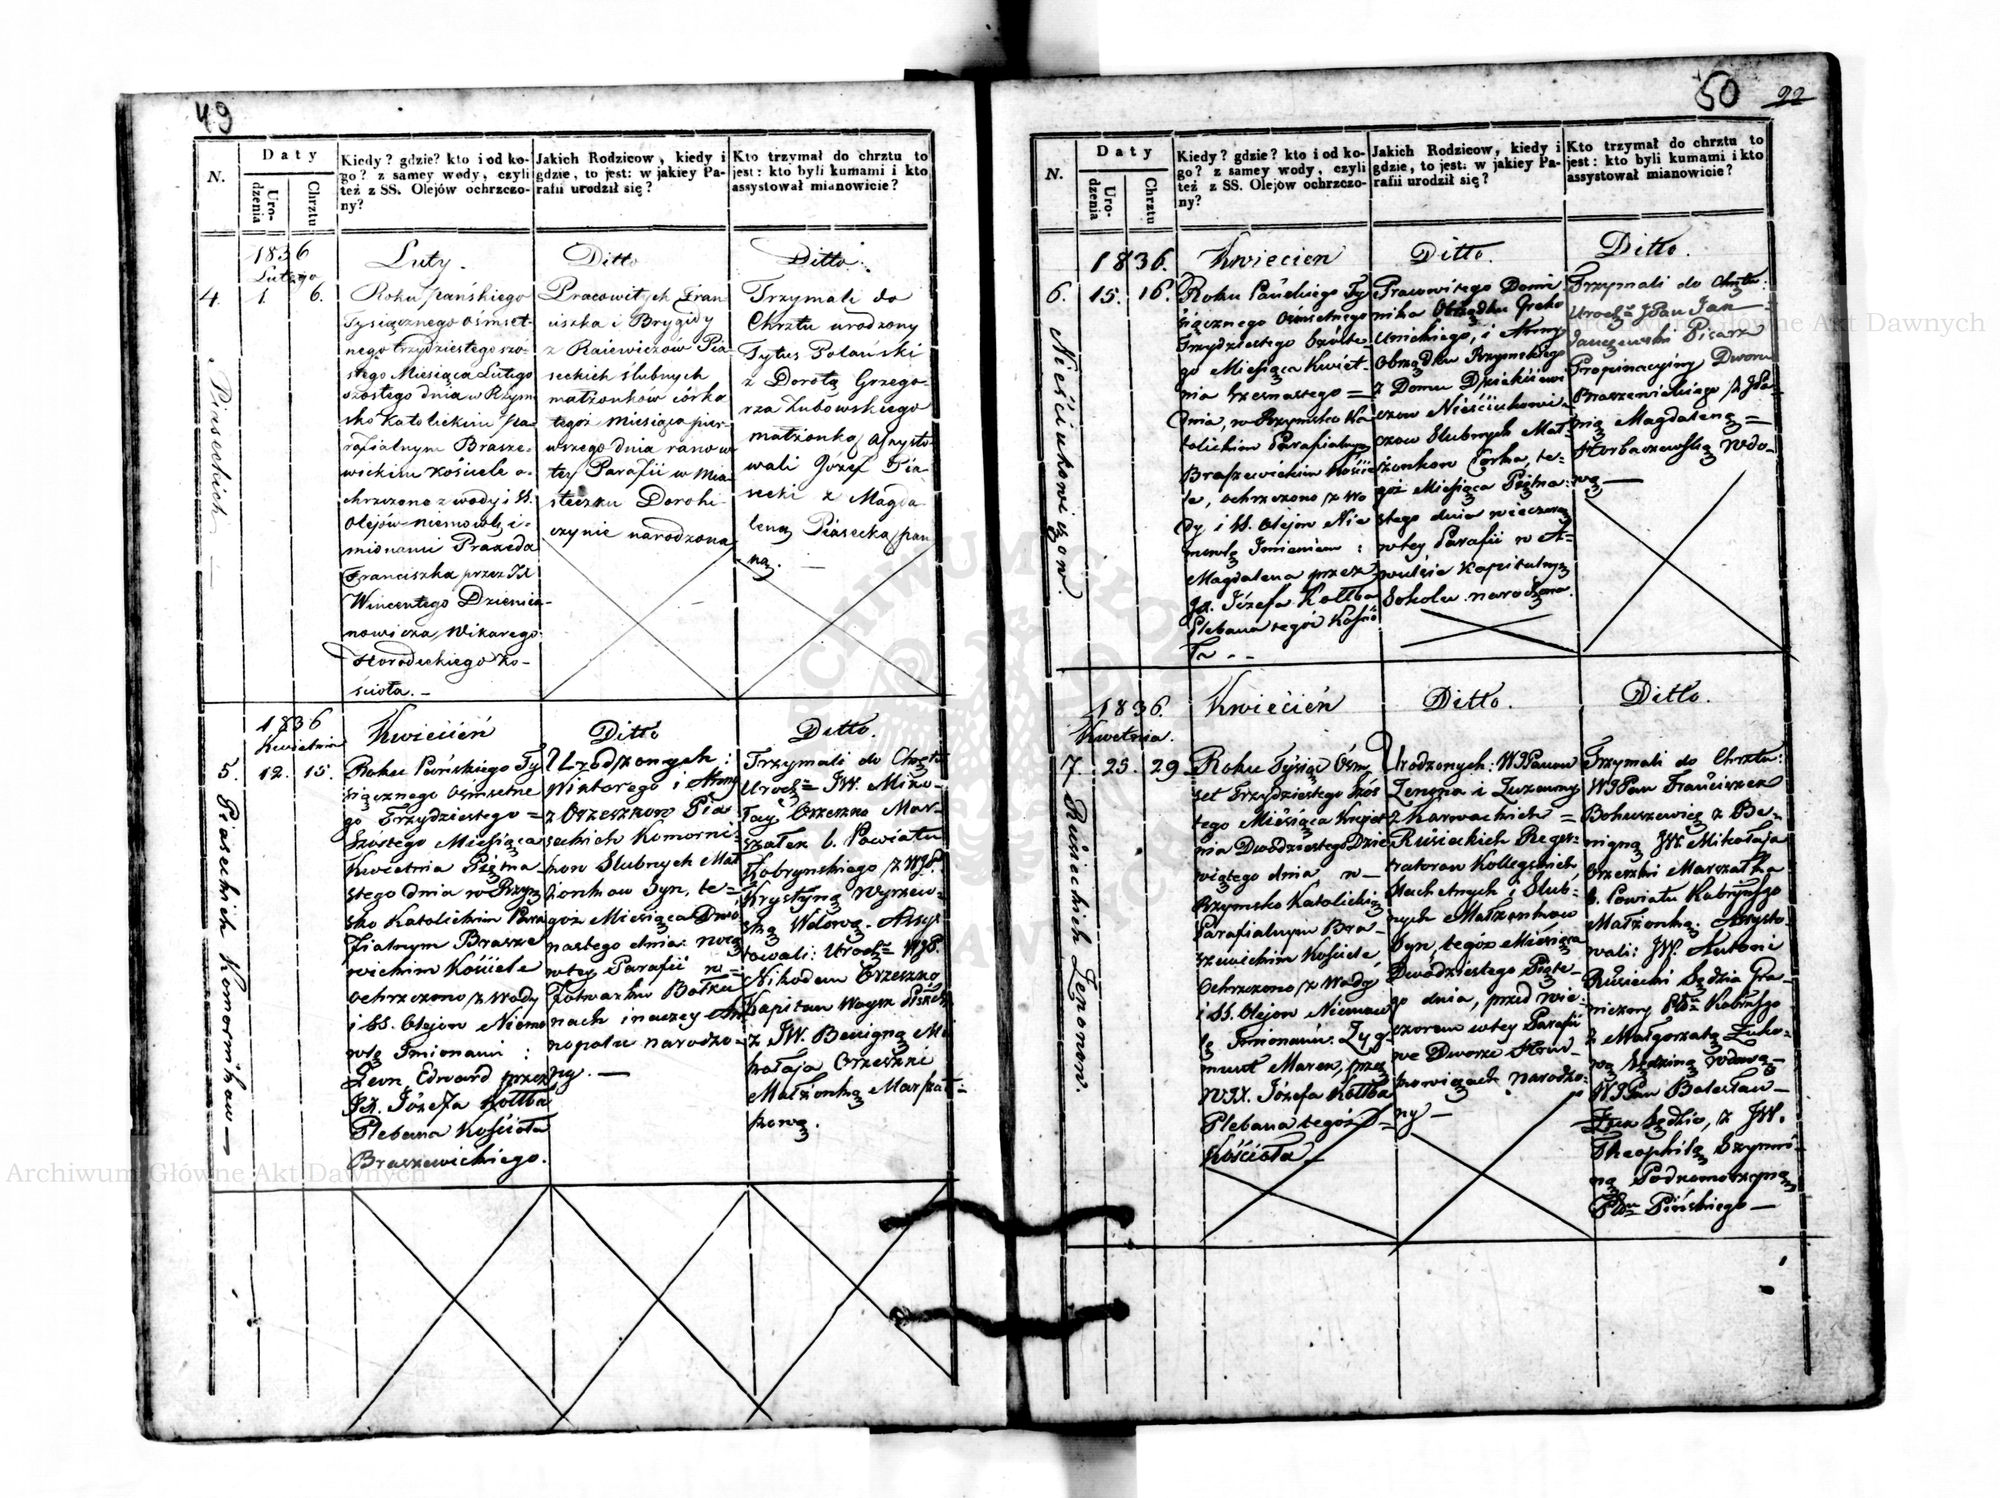 49
N.
Daty
Uro-
dzenia
Chrztu
Kiedy? gdzie? kto i od ko-
go? z samey wody, czyli
też z SS. Olejów ochrzczo-
ny?
Jakich Rodzicow, kiedy i
gdzie, to jest: w jakiey Pa-
rafii urodził się?
Kto trzymał do chrztu to
jest: kto byli kumami i kto
assystował mianowicie?
1836
Lutego
4.
1.
6.
Piaseckich
Luty.
Roku pańskiego
tysiącznego ośmset-
nego trzydziestego szó-
stego Miesiąca Lutego
szóstego dnia w Rzym
sko Katolickim pa-
rafialnym Brasze-
wickim kościele o-
chrzczono z wody i SS.
Olejów niemowlę i-
mionami Praxeda
Franciszka przez JX
Wincentego
nowicza Wikarego
Horodeckiego ko-
ścioła.
Ditto
Pracowitych Fran
ciszka i Brygidy
z Raiewiczów Pia
seckich ślubnych
małżonków córka
tegoż miesiąca pier-
wszego dnia rano w
tey Parafii w Mia
steczku Dorohi
czynie narodzona
Ditto.
Trzymali do
Chrztu urodzony
Tytus Polański
z Dorotą Grzego-
rza Lubowskiego
małżonką Assysto-
wali Józef Pia-
secki z Magda
leną Piasecką pan
ną.
1836
Kwietnia
5.
12.
15.
Piaseckich Komornikow
Kwiecień
Roku Pańskiego Ty
siącznego Ośmsetne
go Trzydziestego
Szóstego Miesiąca
Kwietnia Piętna
stego dnia w Rzym
sko Katolickim Para
fialnym Brasze
wickim Kościele
ochrzczono z Wody
i SS. Olejow Niemo
wlę Imionami :
Leon, Edward przez
JX. Józefa Kołłba
Plebana Kościoła
Braszewickiego.
Ditto
Urodzonych :
Wiktorego i Anny
z Orzeszkow Pia
seckich Komorni-
kow Slubnych Mał
żonkow Syn, te=
goż Miesiąca Dwó
nastego dnia: nocą
w tey Parafii w
Folwarku
nach inaczey An
nopolu narodzo-
ny.
Ditto.
Trzymali do Chrztu
Urodz: JW. Miko-
łay Orzeszko Mar-
szałek b. Powiatu
Kobrynskiego z WJP.
Krystyną
ską Wdową. Assys
towali: Urodz: WJP.
Nikodem Orzeszko
Kapitan Woysk
z JW. Benigną Mi
kołaja Orzeszki
Małżonką Marszał-
kową.
50
22
N.
Daty
Uro-
dzenia
Chrztu
Kiedy? gdzie? kto i od ko-
go? z samey wody, czyli
też z SS. Olejów ochrzczo-
ny?
Jakich Rodzicow, kiedy i
gdzie, to jest: w jakiey Pa-
rafii urodził się?
Kto trzymał do chrztu to
jest: kto byli kumami i kto
assystował mianowicie?
1836.
6.
15.
16.
Nieściukowiczow.
Kwiecień
Roku Pańskiego Ty
siącznego Ośmsetnego
Trzydziestego Szóste-
go Miesiąca Kwiet-
nia Szesnastego
dnia, w Rzymsko Ka
tolickim Parafialnym
Braszewickim Koście
le, ochrzczono z Wo
dy i SS. Olejow Nie
mowlę Imieniem :
Magdalena przez
JX. Józefa Kołłba
Plebana tegoż Kośció
ła
Ditto.
Pracowitego Domi
nika Obrządku Greko
Unickiego, i Anny
Obrządku Rzymskiego
z Domu
czow Nieściukowi-
czow Slubnych Mał-
żonkow Corka, te-
goż Miesiąca Piętna-
stego dnia wieczorem
w tey Parafii w
Kapitulnym
Sokolu narodzona.
Ditto.
Trzymali do Chrztu:
Urodz: JPan Jan
Janczewski Pisarz
Propinacyiny Dworu
Braszewickiego z JPa-
nią Magdaleną
Horbaczewską Wdo-
wą
1836.
Kwietnia.
7.
25.
29
Rusieckich Zenonow.
Kwiecień
Roku Tysiąc Ośm
set Trzydziestego Szós
tego Miesiąca Kwiet
nia Dwódziestego Dzie
wiątego dnia w
Rzymsko Katolickim
Parafialnym Bra-
szewickim Kościele,
Ochrzczono z Wody
i SS. Olejow Niemow
lę Imionami: Zyg-
munt Marek, przez
WJX. Józefa Kołłba
Plebana tegóż
Kościoła
Ditto.
Urodzonych: WJPanow
Zenona i Zuzanny
z Karwackich
Rusieckich Reges-
tratorow Kollegskich
Szlachetnych i Slub-
nych Małżonkow
Syn, tegóż Miesiąca
Dwódziestego Piąte-
go dnia, przed wie-
czorem w tey Parafii
we Dworze
kowiczach narodzo-
ny
Ditto.
Trzymali do Chrztu:
WJPan Franciszek
Bohuszewicz z Be-
nigną JW. Mikołaja
Orzeszki Marszałka
b. Powiatu Kobryńsgo
Małżonką: Assysto-
wali: JW. Antoni
Rusiecki Sędzia Gra-
niczny Kobryńsgo
z Małgorzatą
Sędziną Wdową
WJPan Bolesław
z JW.
Theophilą
ną Podkomorzyną
Pińskiego
Archiwum Główne Akt Dawnych
Archiwum Główne Akt Dawnych